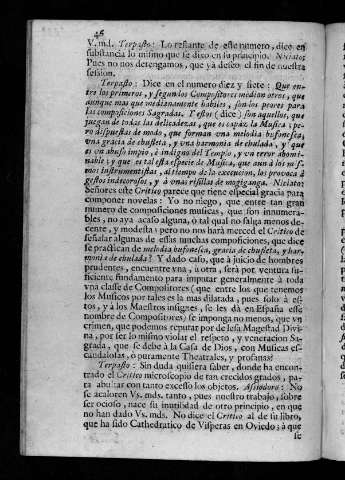 46
V. md. Terpasto: Lo restante de este numero, dice en
substancia lo mismo que se dixo en su principio. Niciato:
Pues no nos detengamos, que yà deseo el fin de nuestra
session.
Terpasto: Dice en el numero diez y siete: Que en-
tre los primeros, y segun los Compositores median otros, que
aunque mas que medianamente habiles, son los peores para
las composiciones Sagradas. Y estos (dice) son aquellos, que
juegan de todas las delicadezas, que es capàz la Musica; pe-
ro dispuestas de modo, que forman vna melodia bufonesca,
vna gracia de chusleta, y vna harmonia de chulada, y què
es vn abuso impio, è indigno del Templo, y vn error abomi-
nable; y que es tal esta especie de Musica, que aun à los mis-
mos instrumentistas, al tiempo de la execucion, los provoca à
gestos indecorosos, y à vnas risillas de mogiganga. Niciato:
Señores este Critico parece que tiene especial gracia para
componer novelas: Yo no niego, que entre tan gran
numero de composiciones musicas, que son innumera-
bles, no aya acaso alguna, ò tal qual no salga menos de-
cente, y modesta; pero no nos harà merced el Critico de
señalar algunas de estas muchas composiciones, que dice
se practican de melodia bufonesca, gracia de chusleta, y har-
monia de chulada? Y dado caso, que à juicio de hombres
prudentes, encuentre vna, ù otra, serà por ventura su-
ficiente fundamento para imputar generalmente à toda
vna classe de Compositores (que entre los que tenemos
los Musicos por tales es la mas dilatada, pues solo à es-
tos, y à los Maestros insignes, se les dà en España esse
nombre de Compositores) se imponga no menos, que vn
crimen, que podemos reputar por de lesa Magestad Divi-
na, por ser lo mismo violar el respeto, y veneracion Sa-
grada, que se debe à la Casa de Dios, con Musicas es-
candalosas, ò puramente Theatrales, y profanas?
Terpasto: Sin duda quisiera saber, donde ha encon-
trado el Critico microscopio de tan crecidos grados, pa-
ra abultar con tanto excesso los objetos. Assiodoro: No
se acaloren Vs. mds. tanto, pues nuestro trabajo, sobre
ser ocioso, nace su inutilidad de otro principio, en que
no han dado Vs. mds. No dice el Critico al de su libro,
que ha sido Cathedratico de Visperas en Oviedo; à que
se